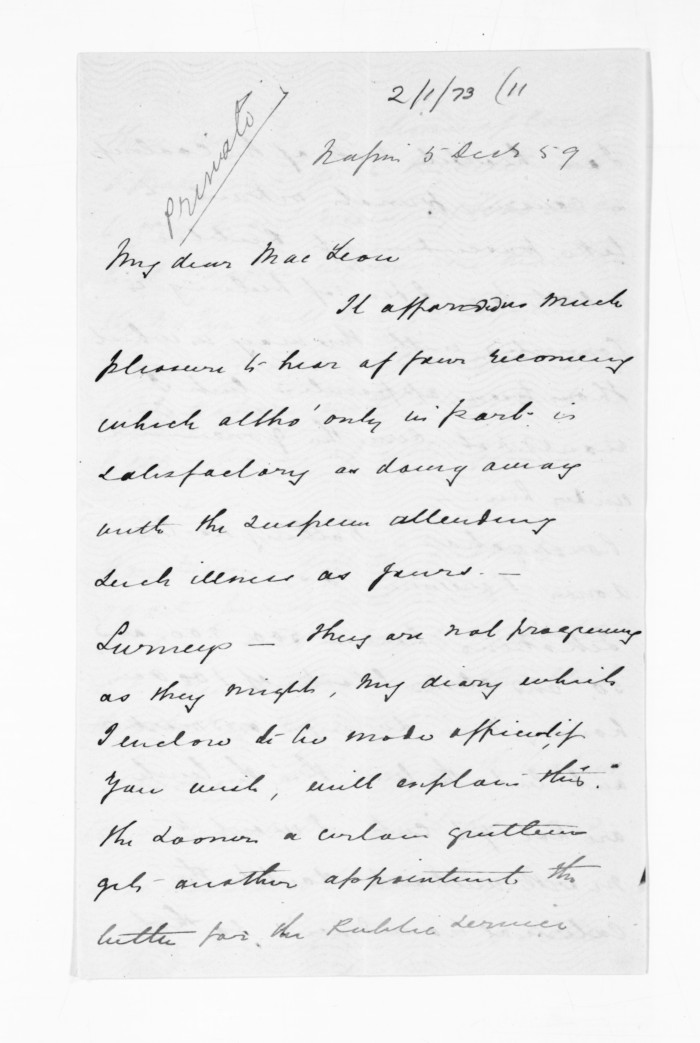 2/1/73 (11
Private
Napier 5 Decr 59
My dear MacLean
It affords me much
pleasure to hear of your recovery
which altho' only in part is
satisfactory as doing away
with the suspense attending
such illness as yours. —
Surveys — they are not progressing
as they might, My diary which
I enclose to be made official if
You wish, will explain this."
the sooner a certain gentleman
gets another appointment the
better for the Public Service